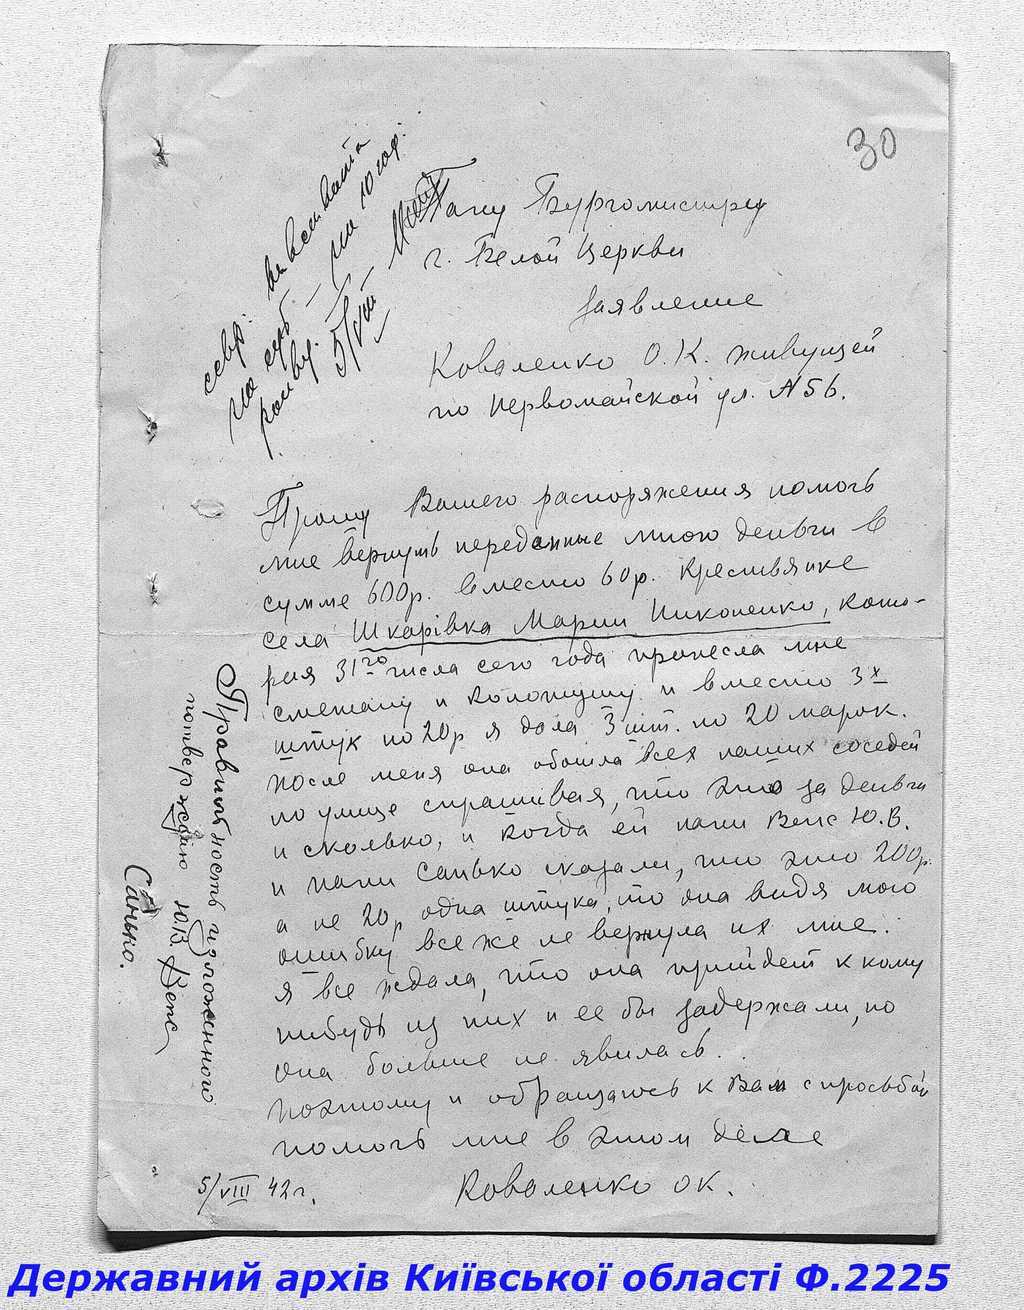 30
Пану Бургомистру
г. Белой Церкви
Заявление
Коваленко О.К. живущей
по Первомайской ул. №56.
Прошу Вашего распоряжения помочь
мне вернуть переданные мною деньги в
сумме 600р. вместо 60р. Крестьянке
села Шкарівка Марии Никоненко, кото-
рая 31го числа сего года принесла мне
сметану и колотушу и вместо 3х
штук по 20р я дала 3 шт. по 20 марок.
После меня она обошла всех наших соседей
по улице спрашивая, что это за деньги
и сколько, и когда ей пани Вепс Ю.В.
и пани Санько сказали, что это 200р.
а не 20р одна штука, то она видя мою
ошибку все же не вернула их мне.
Я все ждала, что она прийдет к кому
нибудь из них и ее бы задержали, но
она больше не явилась.
Поэтому и обращаюсь к Вам с просьбой
помочь мне в этом деле
Коваленко ОК.
5/VIII 42г.
Правильность изложенного
потверждаю Ю.В. Вепс
Санько.
на 10 год.
5/VIII
Державний архів Київської області Ф.2225